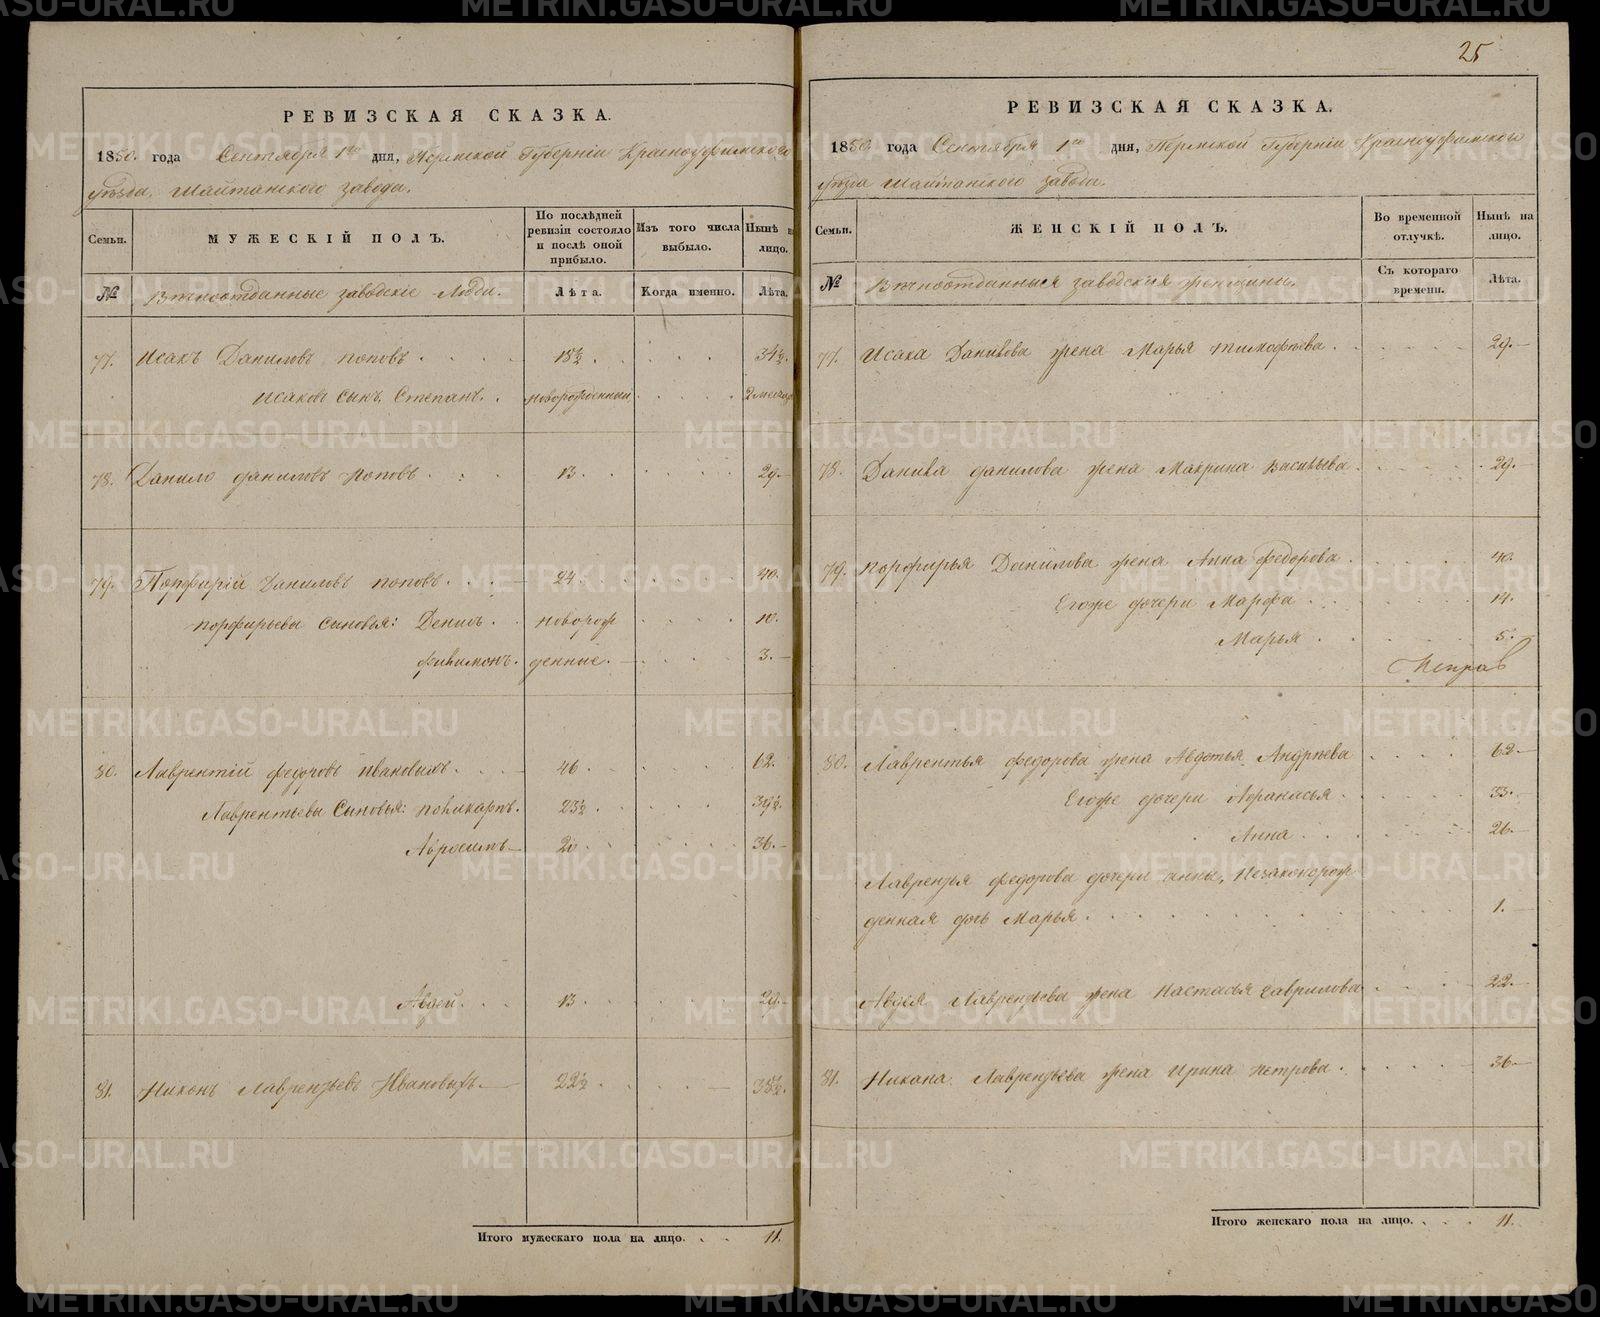 25
РЕВИЗСКАЯ СКАЗКА.
1850. года Сентября 1го дня, Пермской Губерніи Красноуфимскаго
уѣзда, Шайтанскаго завода.
Семьи.
МУЖЕСКІЙ ПОЛЪ.
По послѣдней ревизіи состояло и послѣ оной прибыло.
Изъ того числа выбыло.
Нынѣ на лицо.
№
Вѣчноотданные заводскіе Люди.
Лѣта.
Когда именно.
Лѣта.
77. Исакъ Даниловъ Поповъ 18½ 34½
Исаковъ сынъ Степанъ. новорожденный 2 месяц
78. Данило Даниловъ Поповъ 13. 29.
79. Порфирій Даниловъ Поповъ 24. 40.
Порфирьевы сыновья: Денисъ новорож 10.
Филимонъ. денные. 3.
80. Лаврентій Федоровъ Ивановыхъ. 46. 62.
Лаврентьевы Сыновья: Поликарпъ. 23½ 39½
Абросимъ 20. 36.
Авдей. 13. 29.
81. Никонъ Лаврентьевъ Ивановыхъ 22½ 38½
Итого мужескаго пола на лицо. 11.
РЕВИЗСКАЯ СКАЗКА.
1850. года Сентября 1го дня, Пермской Губерніи Красноуфимскаго
уѣзда Шайтанскаго завода.
Семьи.
ЖЕНСКІЙ ПОЛЪ.
Во временной отлучкѣ.
Нынѣ на лицо.
№
Вѣчноотданныя заводскія женщины.
Съ котораго времени.
Лѣта.
77. Исака Данилова жена Марья Тимофѣева 29.
78. Данила Данилова жена Макрина Васильева 29.
79. Порфирья Данилова жена Анна Федорова 40.
Егоже дочери Марфа 14.
Марья 5.
80. Лаврентья Федорова жена Авдотья Андрѣева 62.
Егоже дочери Афанасья 33.
Анна 26.
Лаврентья Федорова дочери Анны, Незаконорож
денная дочь Марья 1.
Авдея Лаврентьева жена Настасья Гаврилова 22.
81. Никона Лаврентьева жена Ирина Петрова 36.
Итого женскаго пола на лицо. 11.
METRIKI.GASO-URAL.RU